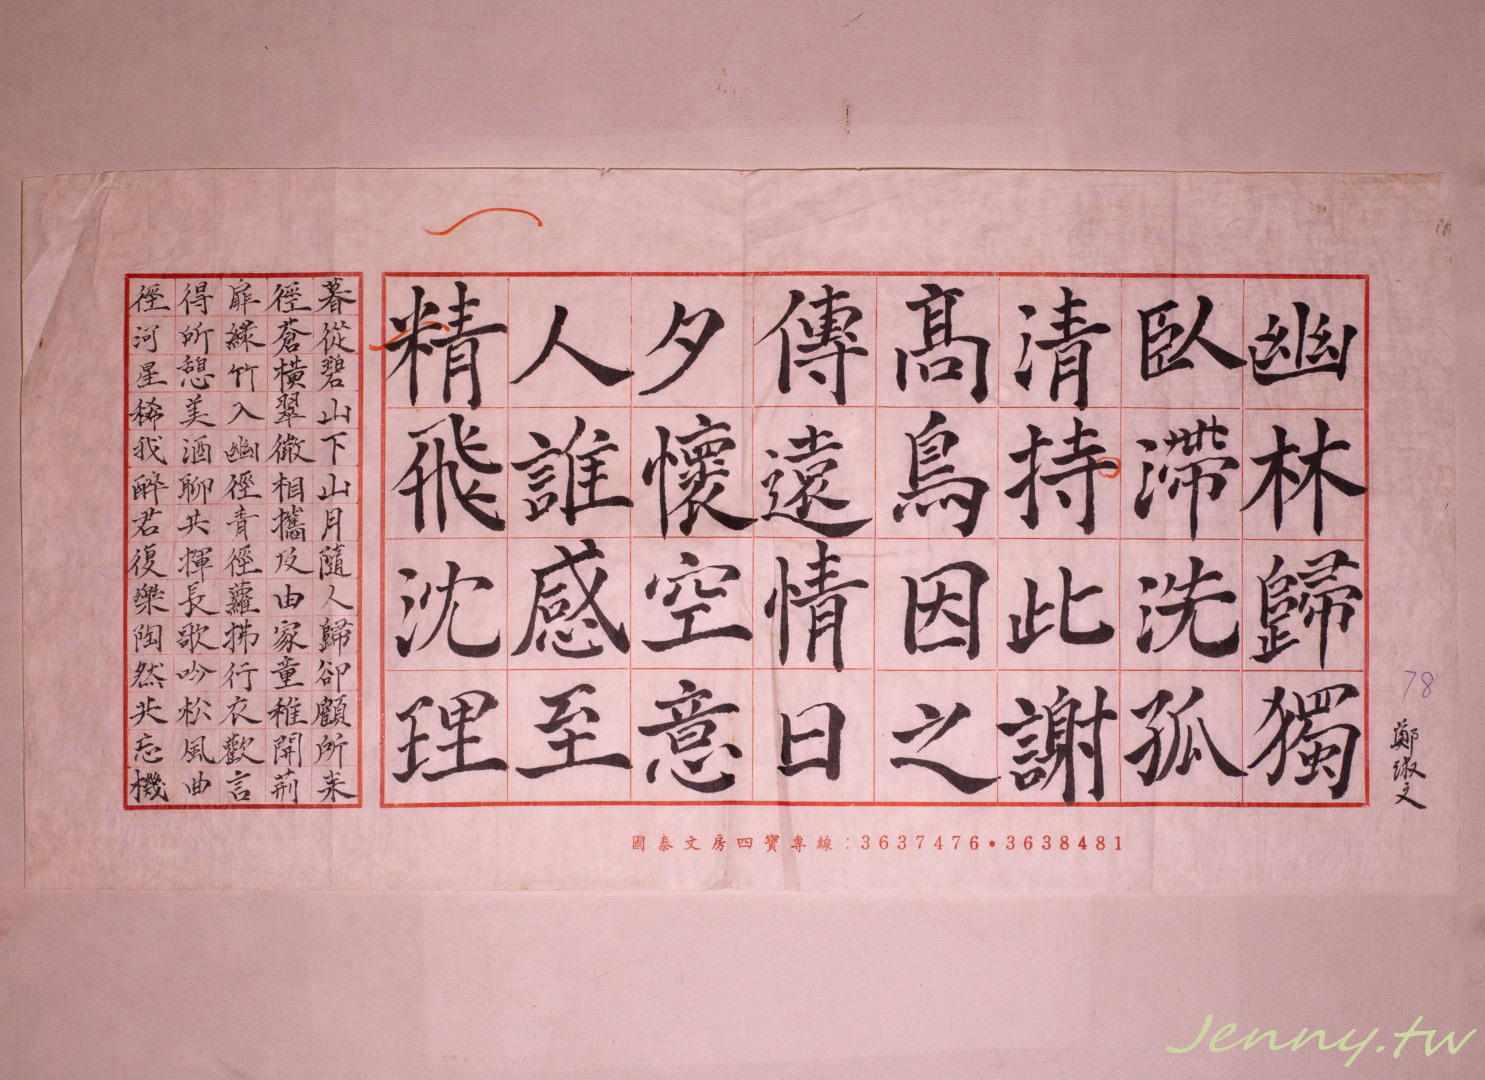 幽林歸獨
臥滯洗孤
清持此謝
高鳥因之
傳遠情日
夕懷空意
人誰感至
精飛沈理
暮從碧山下山月隨人歸卻顧所來
徑蒼橫翠微相攜及由家童稚開荊
扉綠竹入幽徑青徑蘿拂行衣歡言
得所憩美酒聊共揮長歌吟松風曲
徑河星稀我醉君復樂陶然共忘機
78
鄭淑文
國泰文房四寶專線:3637476•3638481
Jenny.tw